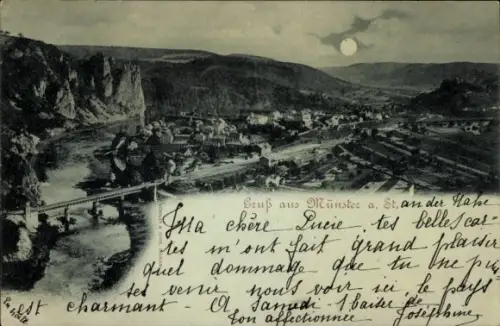 Gruß aus Münster a. St.
an der Nahe
Ma chère Lucie, tes belles car
tes m'ont fait grand plaisir
quel dommage que tu ne puis
ses venir nous voir ici, le pays
est charmant - A Samedi 1 baiser de
ton affectionnée Joséphine